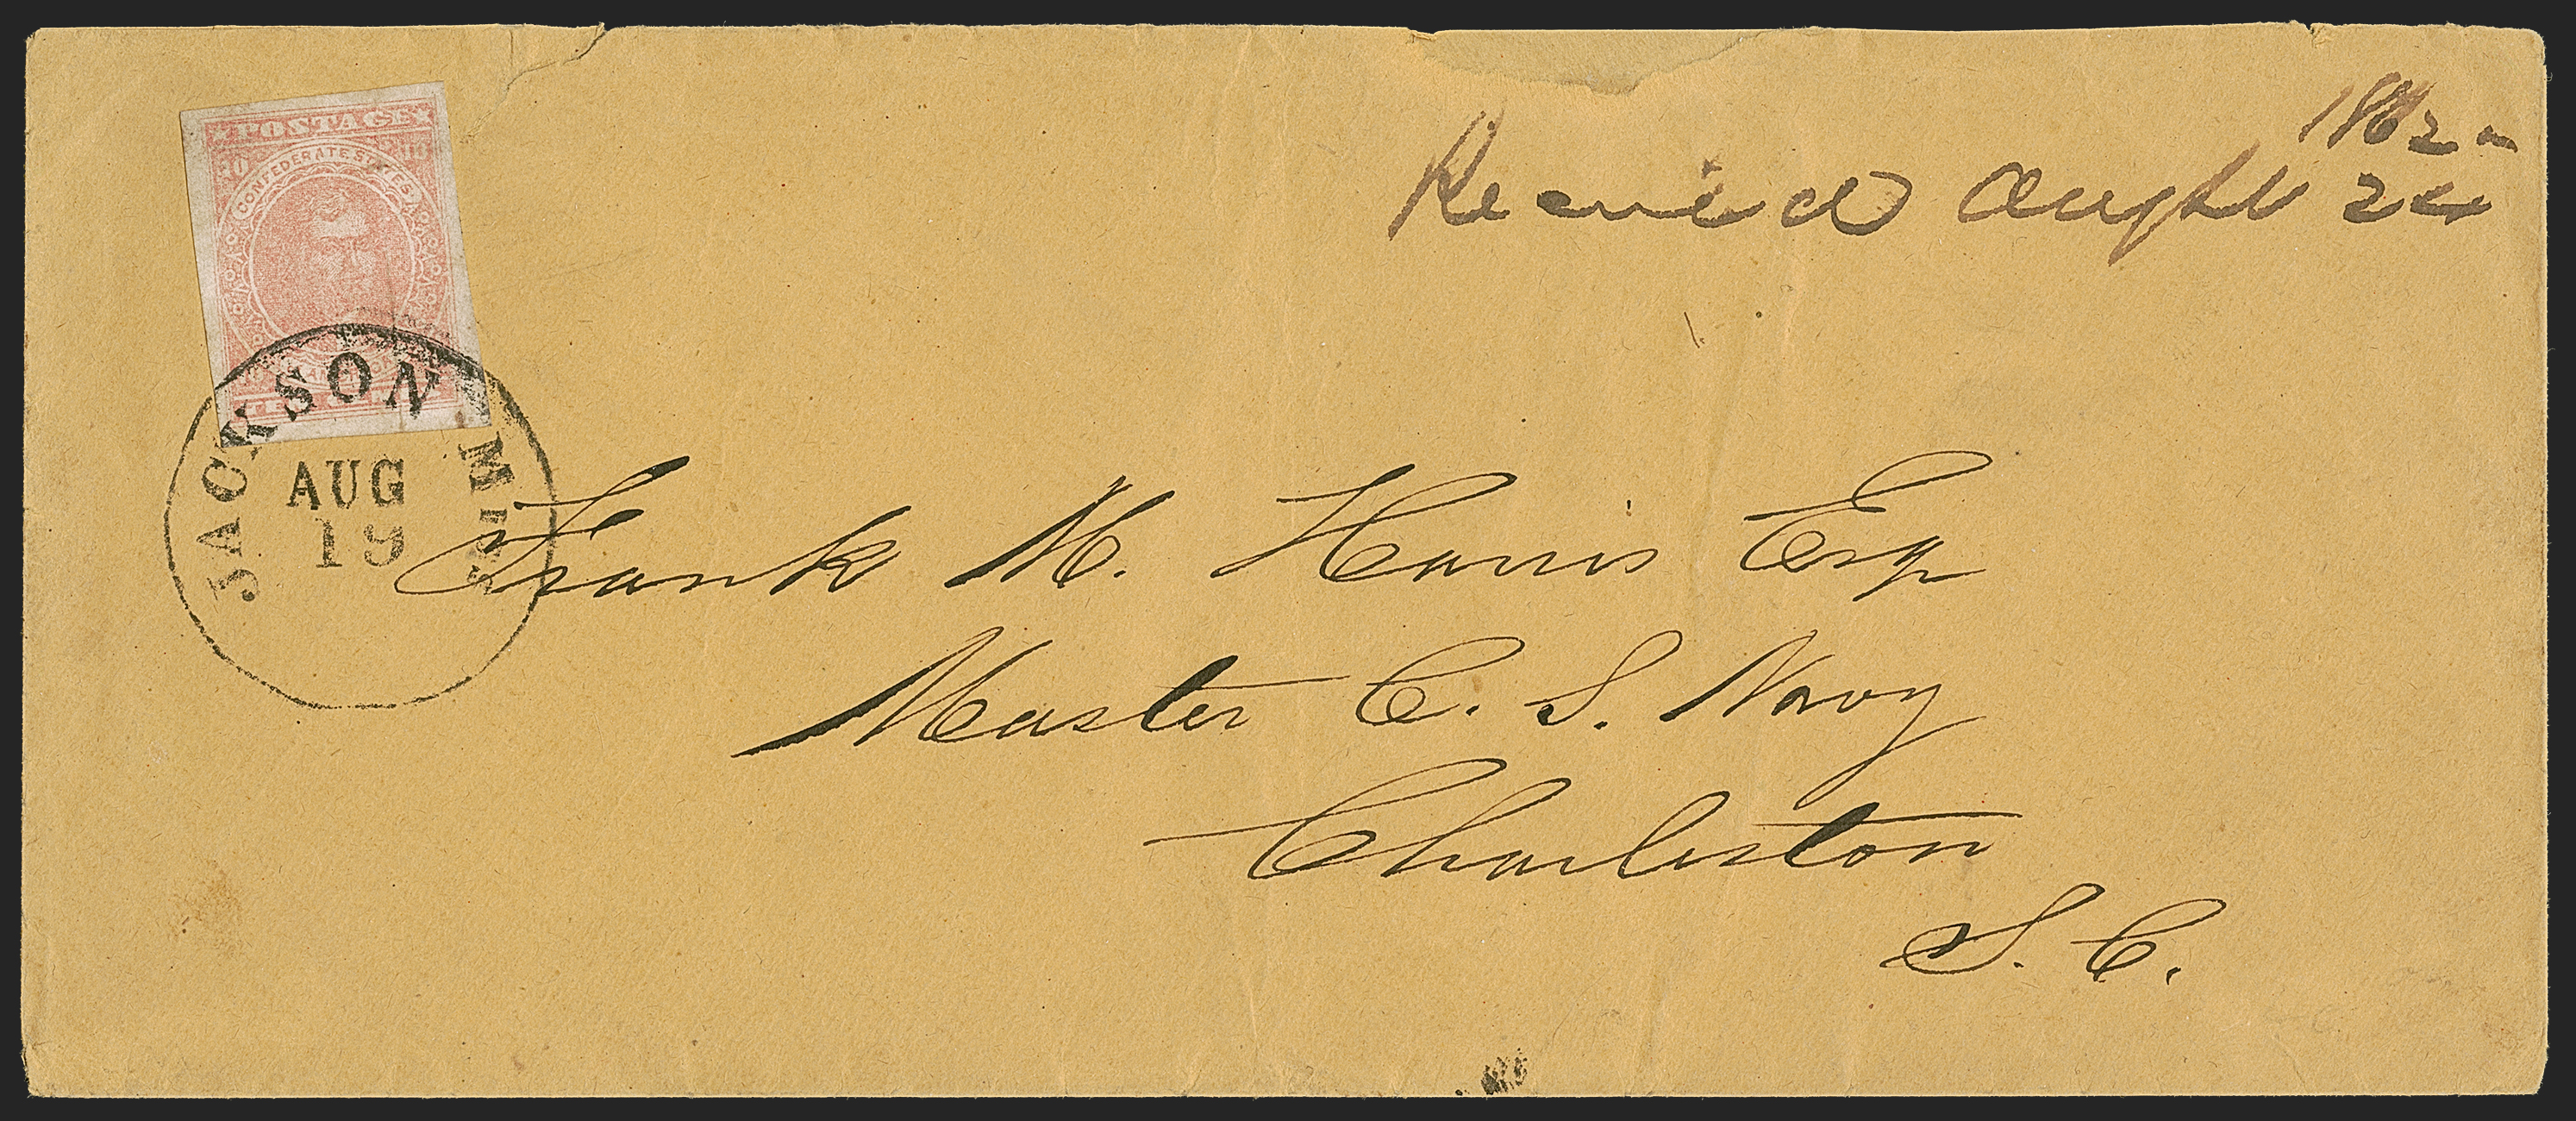 POSTAGE
10 10
CONFEDERATE STATES
TEN
JACKSON MISS
AUG
19
1862
Received Augst 24
Frank M. Harris Esq
Master C. S. Navy
Charleston
S. C.